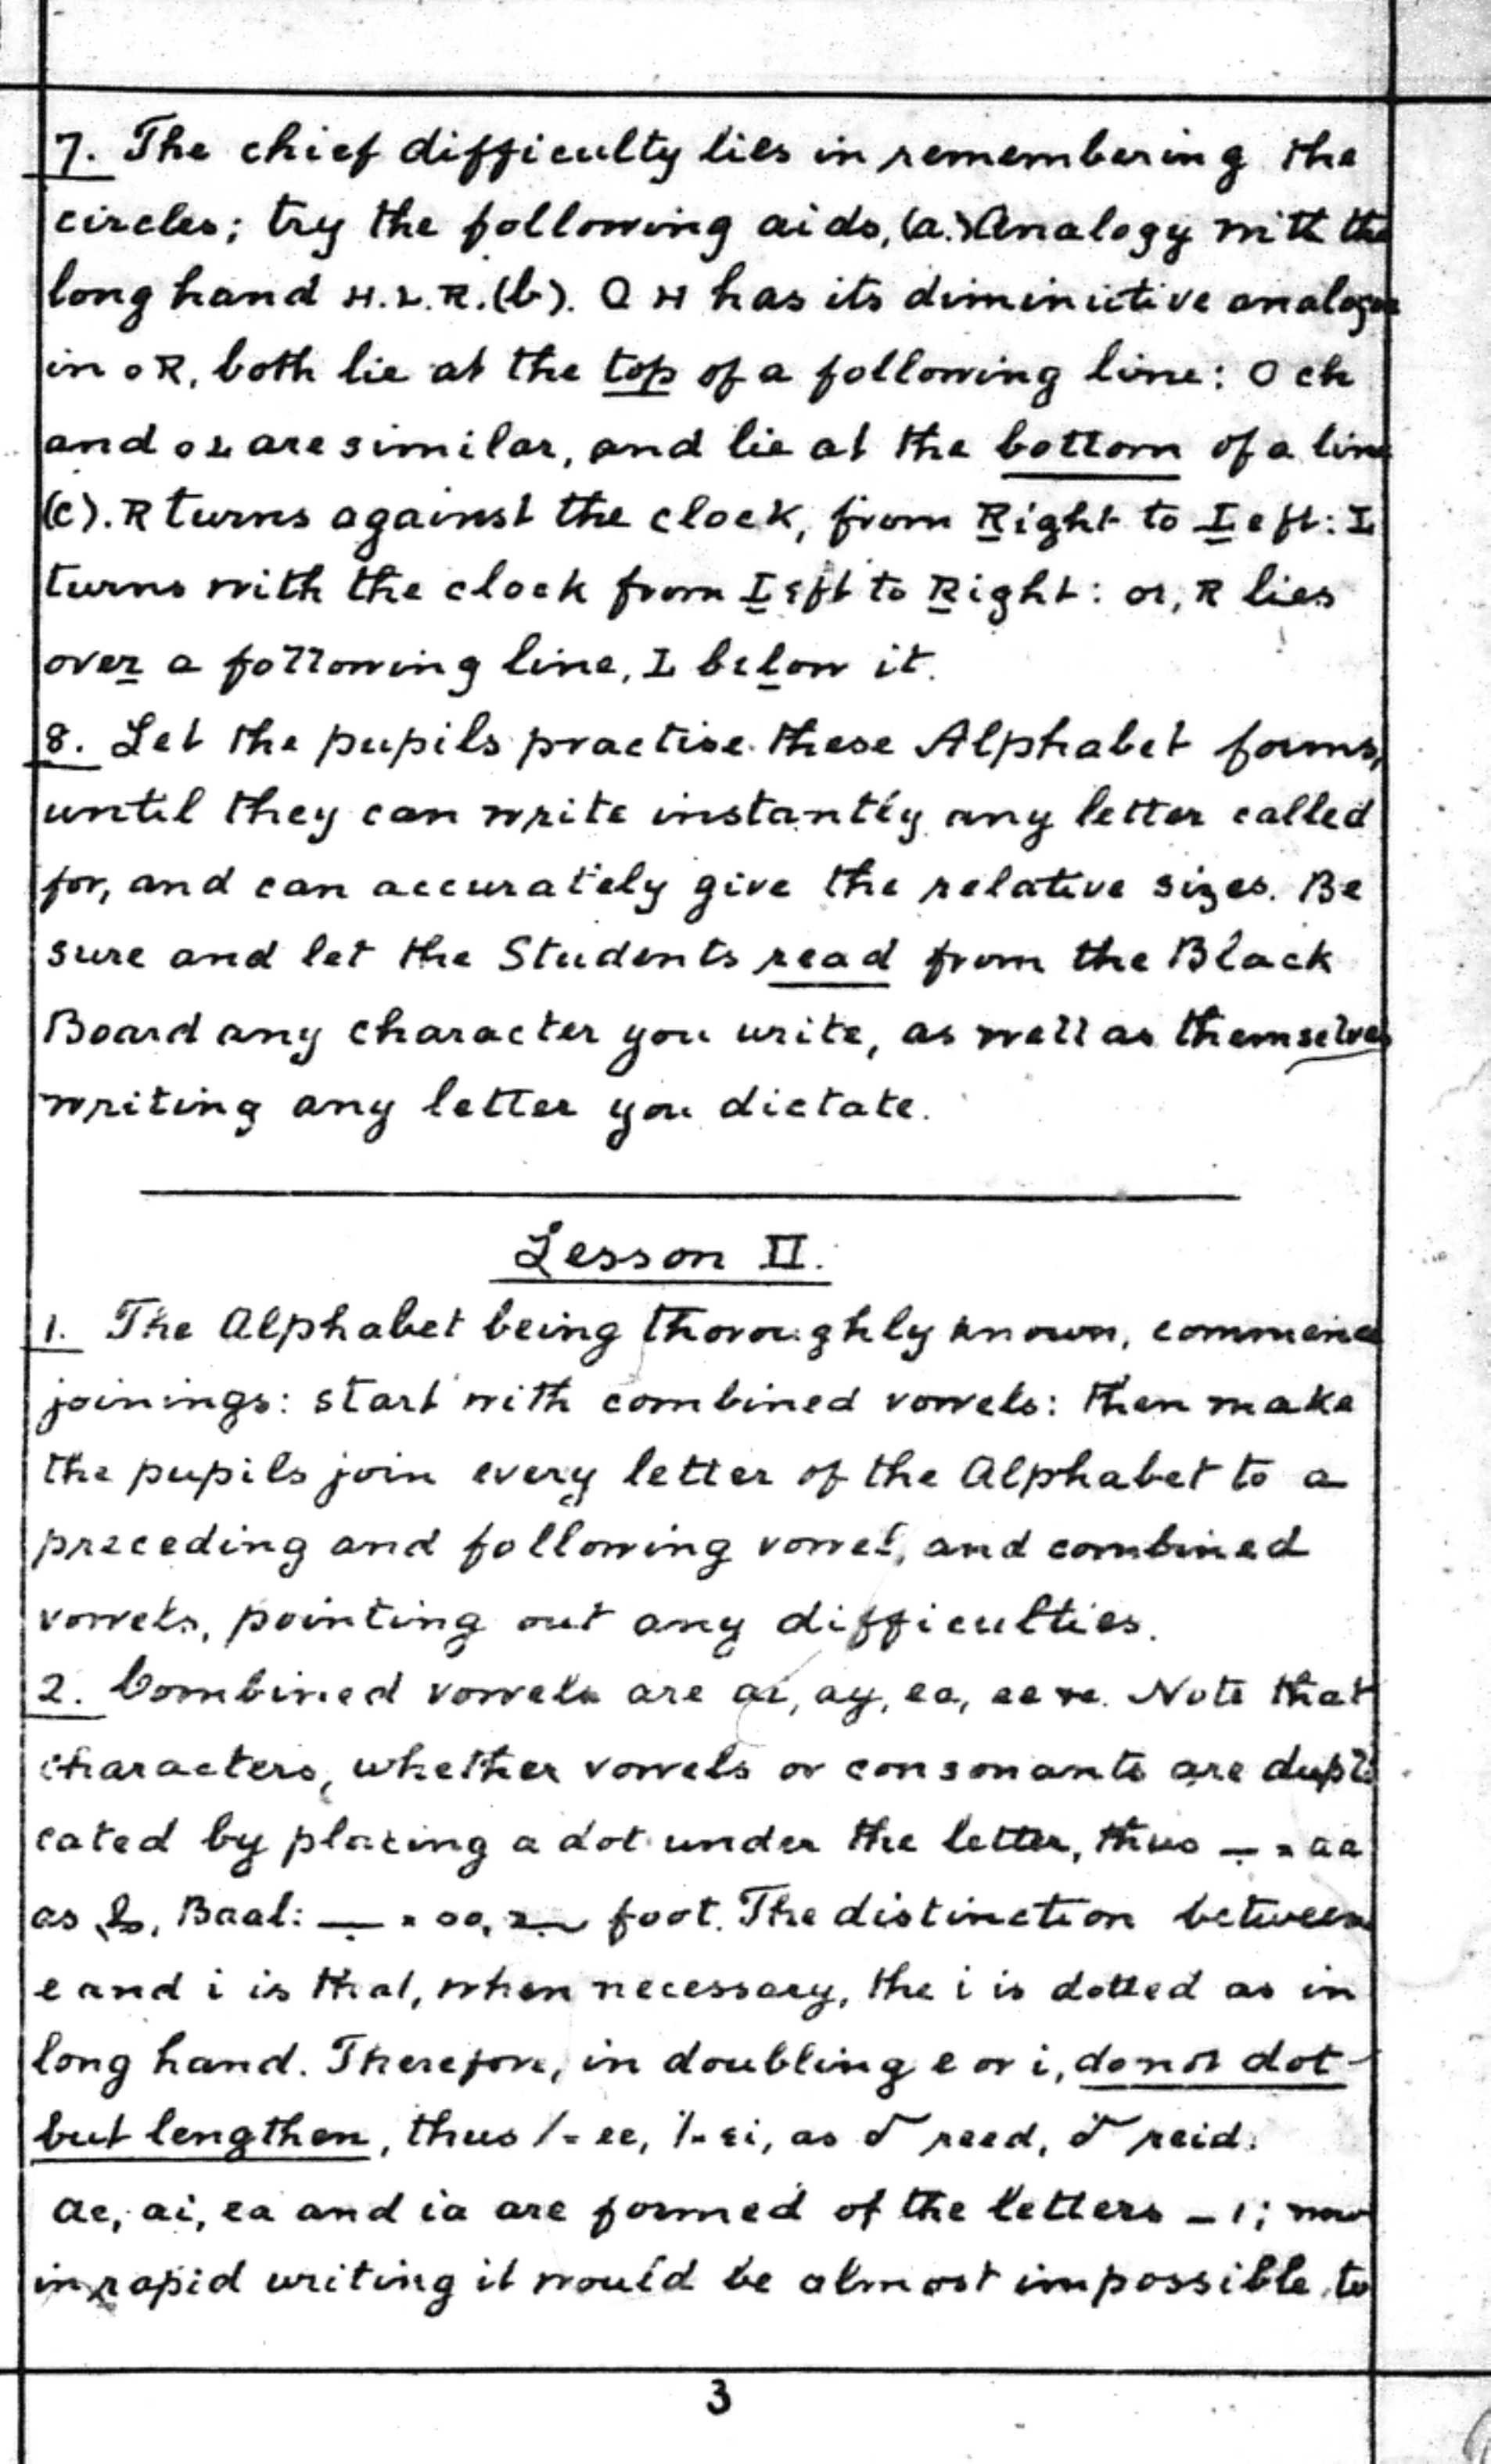 7. The chief difficulty lies in remembering the
circles; try the following aids, (a.) Analogy with the
long hand H.L.R. (b). O H has its diminutive analogue
in o R, both lie at the top of a following line: O ch
and o L are similar, and lie at the bottom of a line
(c). R turns against the clock, from Right to Left: L
turns with the clock from Left to Right: or, R lies
over a following line, L below it.
8. Let the pupils practise these Alphabet forms,
until they can write instantly any letter called
for, and can accurately give the relative sizes. Be
sure and let the Students read from the Black
Board any character you write, as well as themselves
writing any letter you dictate.
Lesson II.
1. The Alphabet being thoroughly known, commence
joinings: start with combined vowels: then make
the pupils join every letter of the Alphabet to a
preceding and following vowel, and combined
vowels, pointing out any difficulties.
2. Combined vowels are ai, ay, ea, ee. Note that
characters, whether vowels or consonants are dupli
cated by placing a dot under the letter, thus = aa
as, Baal: = oo, foot. The distinction between
e and i is that, when necessary, the i is dotted as in
long hand. Therefore, in doubling e or i, do not dot
but lengthen, thus / = ee, = ei, as reed, reid.
Ae, ai, ea and ia are formed of the letters – ı; now
in rapid writing it would be almost impossible to
3